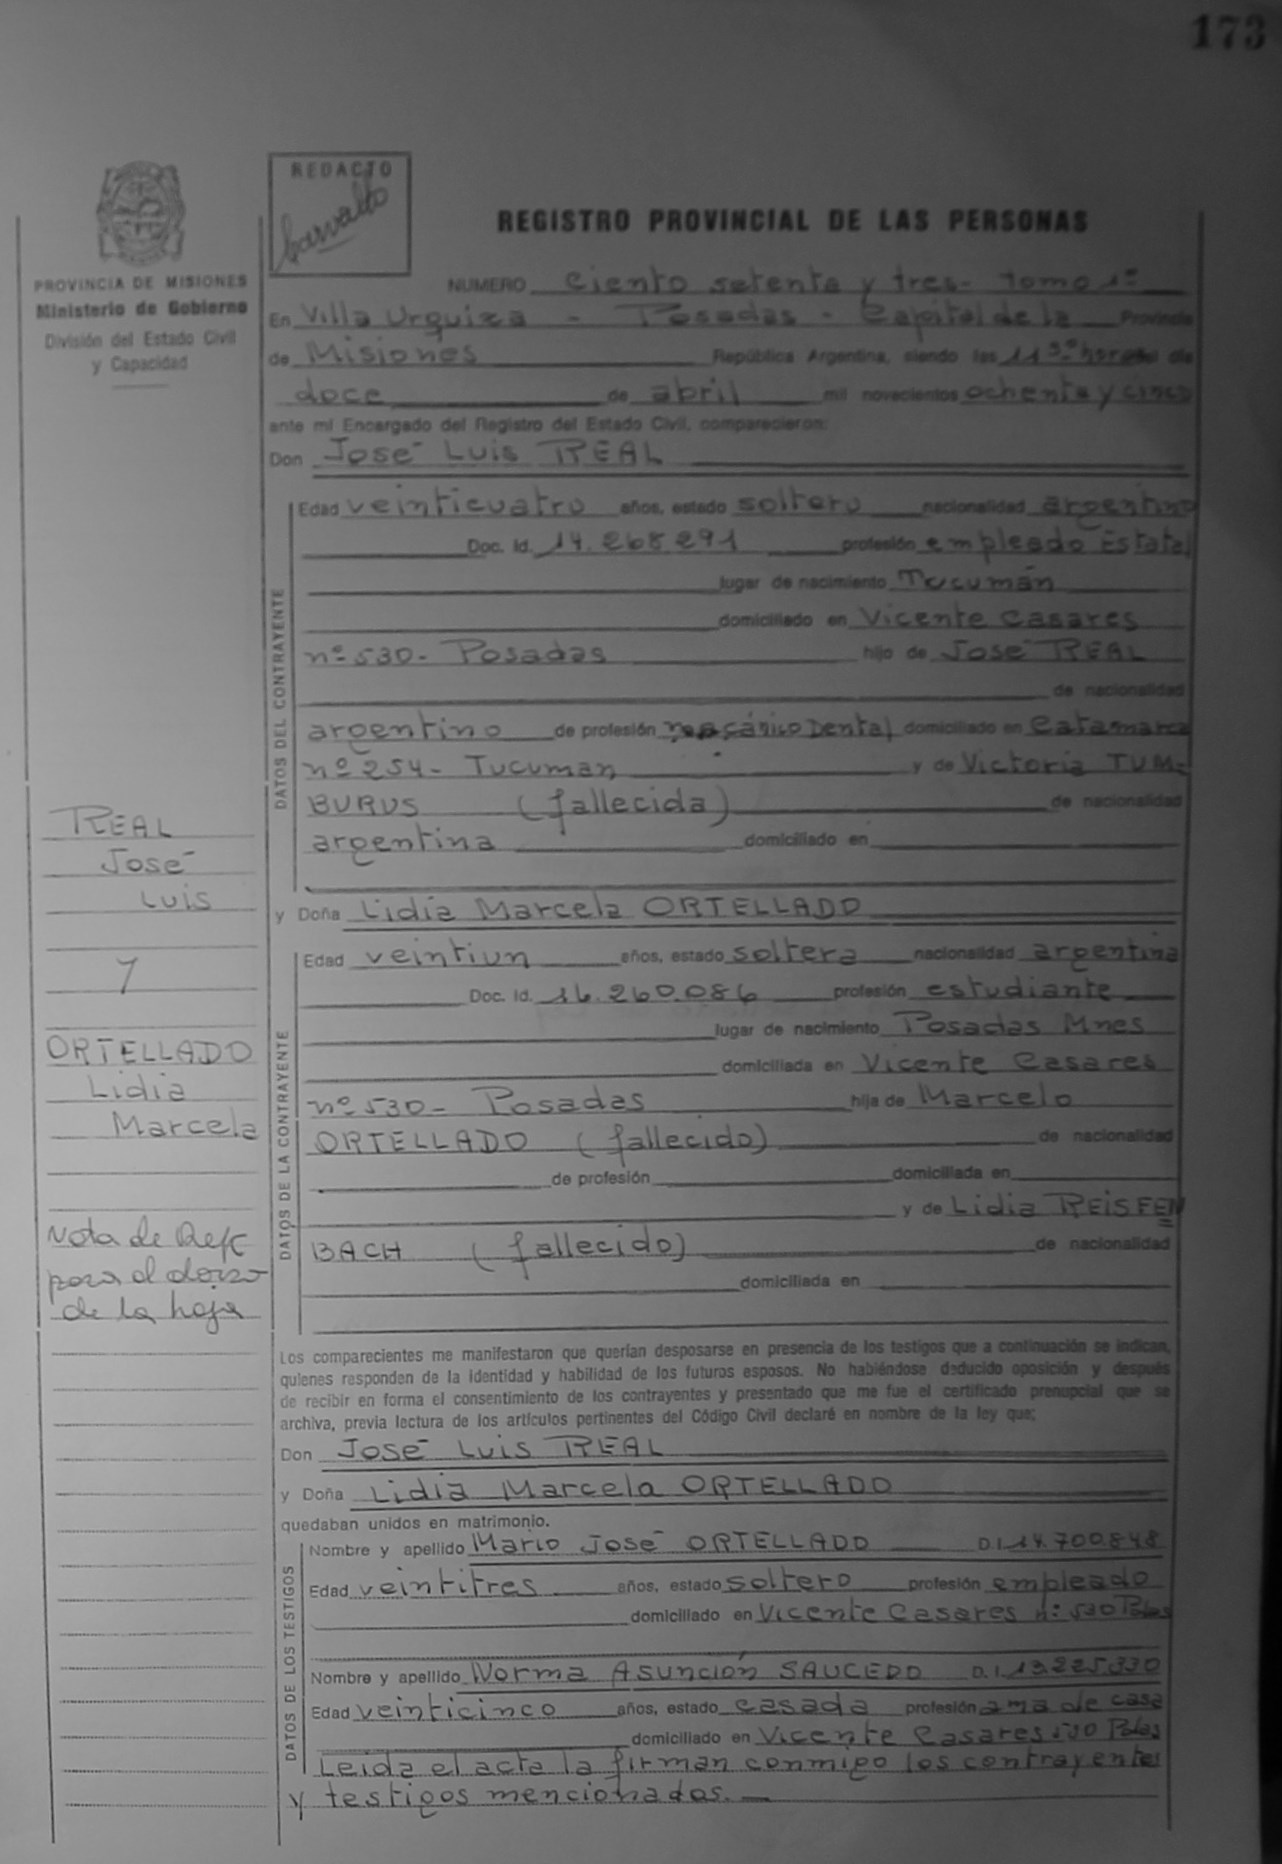 173
REDACTO
Carvallo
REGISTRO PROVINCIAL DE LAS PERSONAS
PROVINCIA DE MISIONES
Ministerio de Gobierno
División del Estado Civil
y Capacidad
NUMERO Ciento setenta y tres- tomo 1º
En Villa Urquiza - Posadas - Capital de la Provincia
de Misiones República Argentina, siendo las 11 30 horas del día
doce de abril mil novecientos ochenta y cinco
ante mí Encargado del Registro del Estado Civil, comparecieron:
Don José Luis REAL
DATOS DEL CONTRAYENTE
Edad veinticuatro años, estado soltero nacionalidad argentino
Doc. Id. 14.268.291 profesión empleado Estatal
lugar de nacimiento Tucumán
domiciliado en Vicente Casares
nº 530- Posadas hijo de José REAL
de nacionalidad
argentino de profesión mecánico Dental domiciliado en Catamarca
nº 254- Tucuman y de Victoria TUM=
BURUS (fallecida) de nacionalidad
argentina domiciliado en
REAL
José
Luis
y
ORTELLADO
Lidia
Marcela
Nota de Ref
para al dorso
de la hoja
y Doña Lidia Marcela ORTELLADO
DATOS DE LA CONTRAYENTE
Edad veintiun años, estado soltera nacionalidad argentina
Doc. Id. 16.260.086 profesión estudiante
lugar de nacimiento Posadas Mnes
domiciliada en Vicente Casares
nº 530- Posadas hija de Marcelo
ORTELLADO (fallecido) de nacionalidad
de profesión domiciliada en
y de Lidia REISFEN
BACH (fallecido) de nacionalidad
domiciliada en
Los comparecientes me manifestaron que querían desposarse en presencia de los testigos que a continuación se indican,
quienes responden de la identidad y habilidad de los futuros esposos. No habiéndose deducido oposición y después
de recibir en forma el consentimiento de los contrayentes y presentado que me fue el certificado prenupcial que se
archiva, previa lectura de los artículos pertinentes del Código Civil declaré en nombre de la ley que;
Don José Luis REAL
y Doña Lidia Marcela ORTELLADO
quedaban unidos en matrimonio.
DATOS DE LOS TESTIGOS
Nombre y apellido Mario José ORTELLADO D.I.14.700.848
Edad veintitres años, estado soltero profesión empleado
domiciliado en Vicente Casares nº 530 Pdas
Nombre y apellido Norma Asunción SAUCEDO D.I.13.225.330
Edad veinticinco años, estado casada profesión ama de casa
domiciliado en Vicente Casares 530 Pdas
Leida el acta la firman conmigo los contrayentes
y testigos mencionados.-